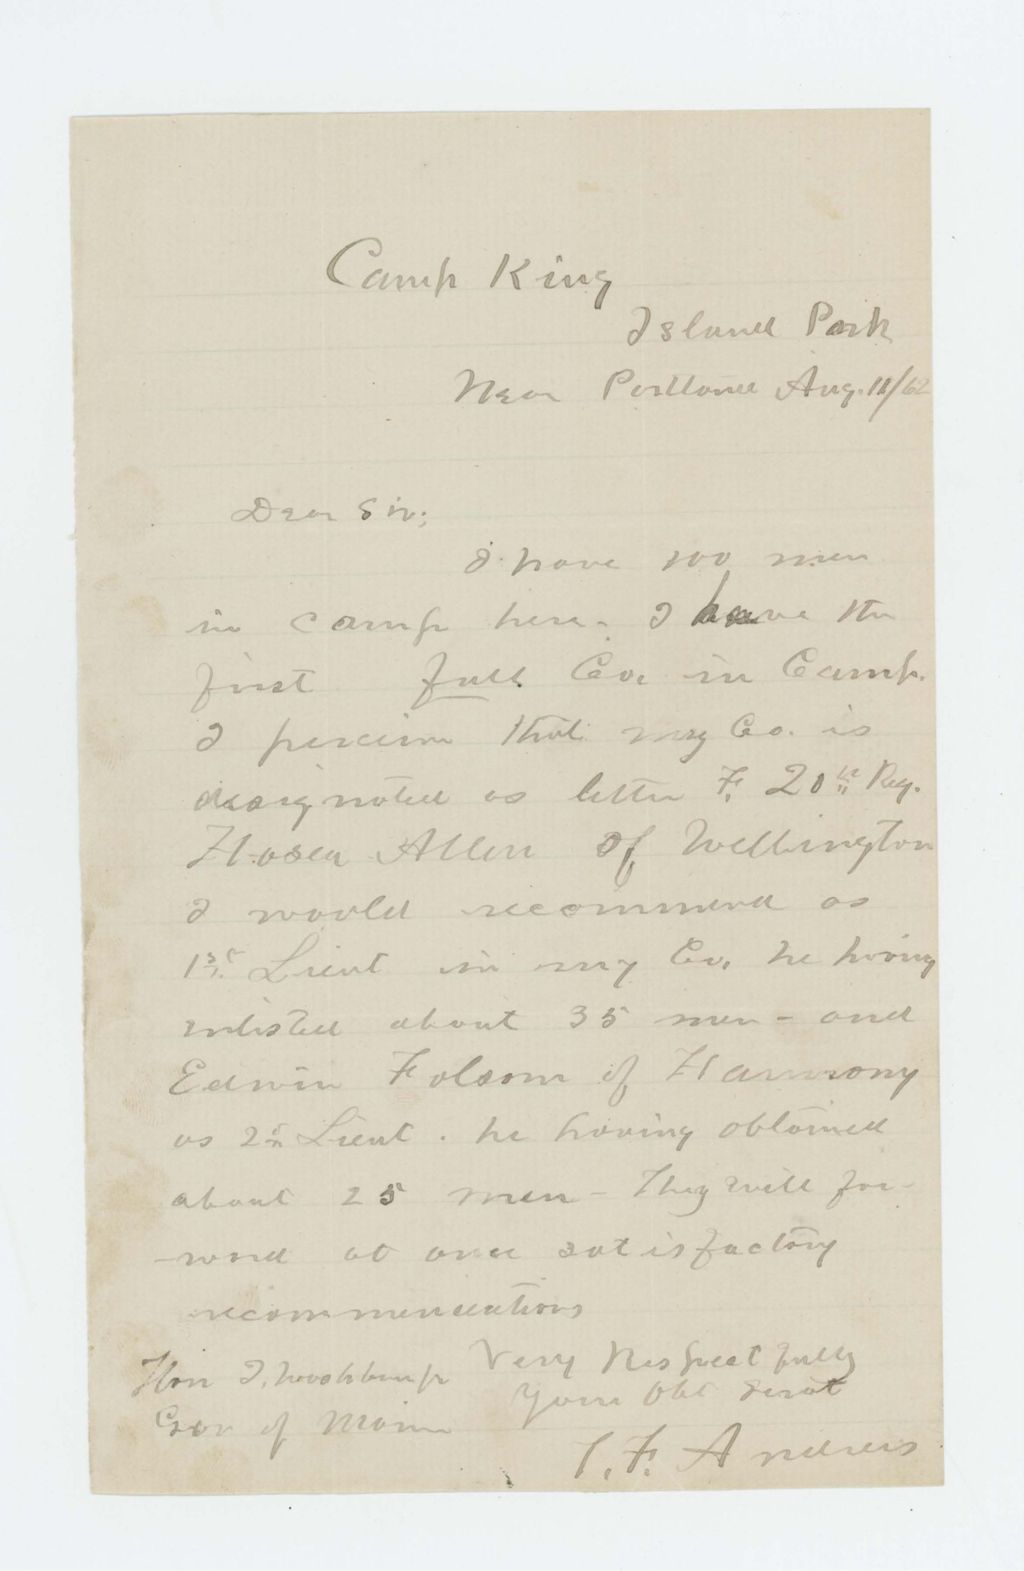 Camp King
Island Park
Near Portland Aug. 11/62
Dear Sir;
I have 100 men
in camp here. I have the
first full Co. in Camp.
I perceive that my Co. is
designated as letter F. 20th Reg.
Hosea Allen of Wellington
I would recommend as
1st Lieut in my Co. he having
enlisted about 35 men - and
Edwin Folsom of Harmony
as 2n Lieut. he having obtained
about 25 men - They will for-
-ward at once satisfactory
recommendations
Very Respectfully
Your Obt Servt
I. F. Andrews
Hon I. Washburn Jr
Gov of Maine